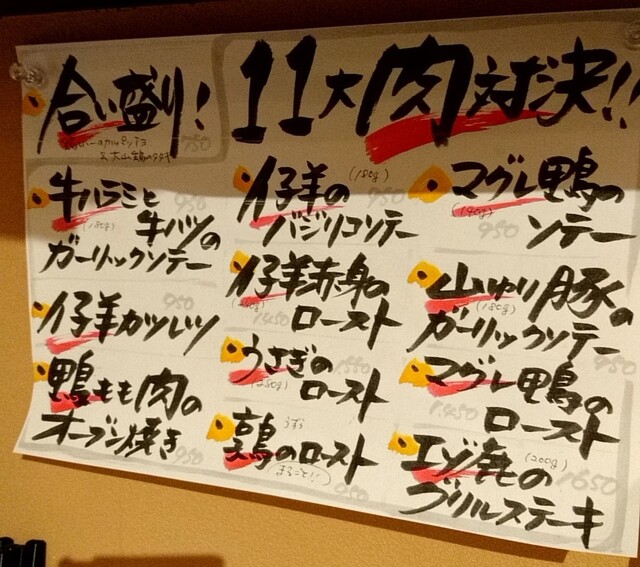 11大肉対決!!
合い盛り!
750
&大山鶏のタタキ
マグレ鴨の
ソテー
950
山ゆり豚の
(180g)
ガーリックソテー
950
マグレ鴨の
ロースト
1.450
エゾ鹿の
(200g)
1650
グリルステーキ
仔羊の
(180g)
950
バジリコソテー
仔羊赤身の
ロースト
1.450
うさぎの
(250g)
ロースト
鶉のロースト
うずら
まるごと!!
牛ハラミと
(180g)
950
牛ハツの
ガーリックソテー
仔羊カツレツ
950
鴨もも肉の
オーブン焼き
950